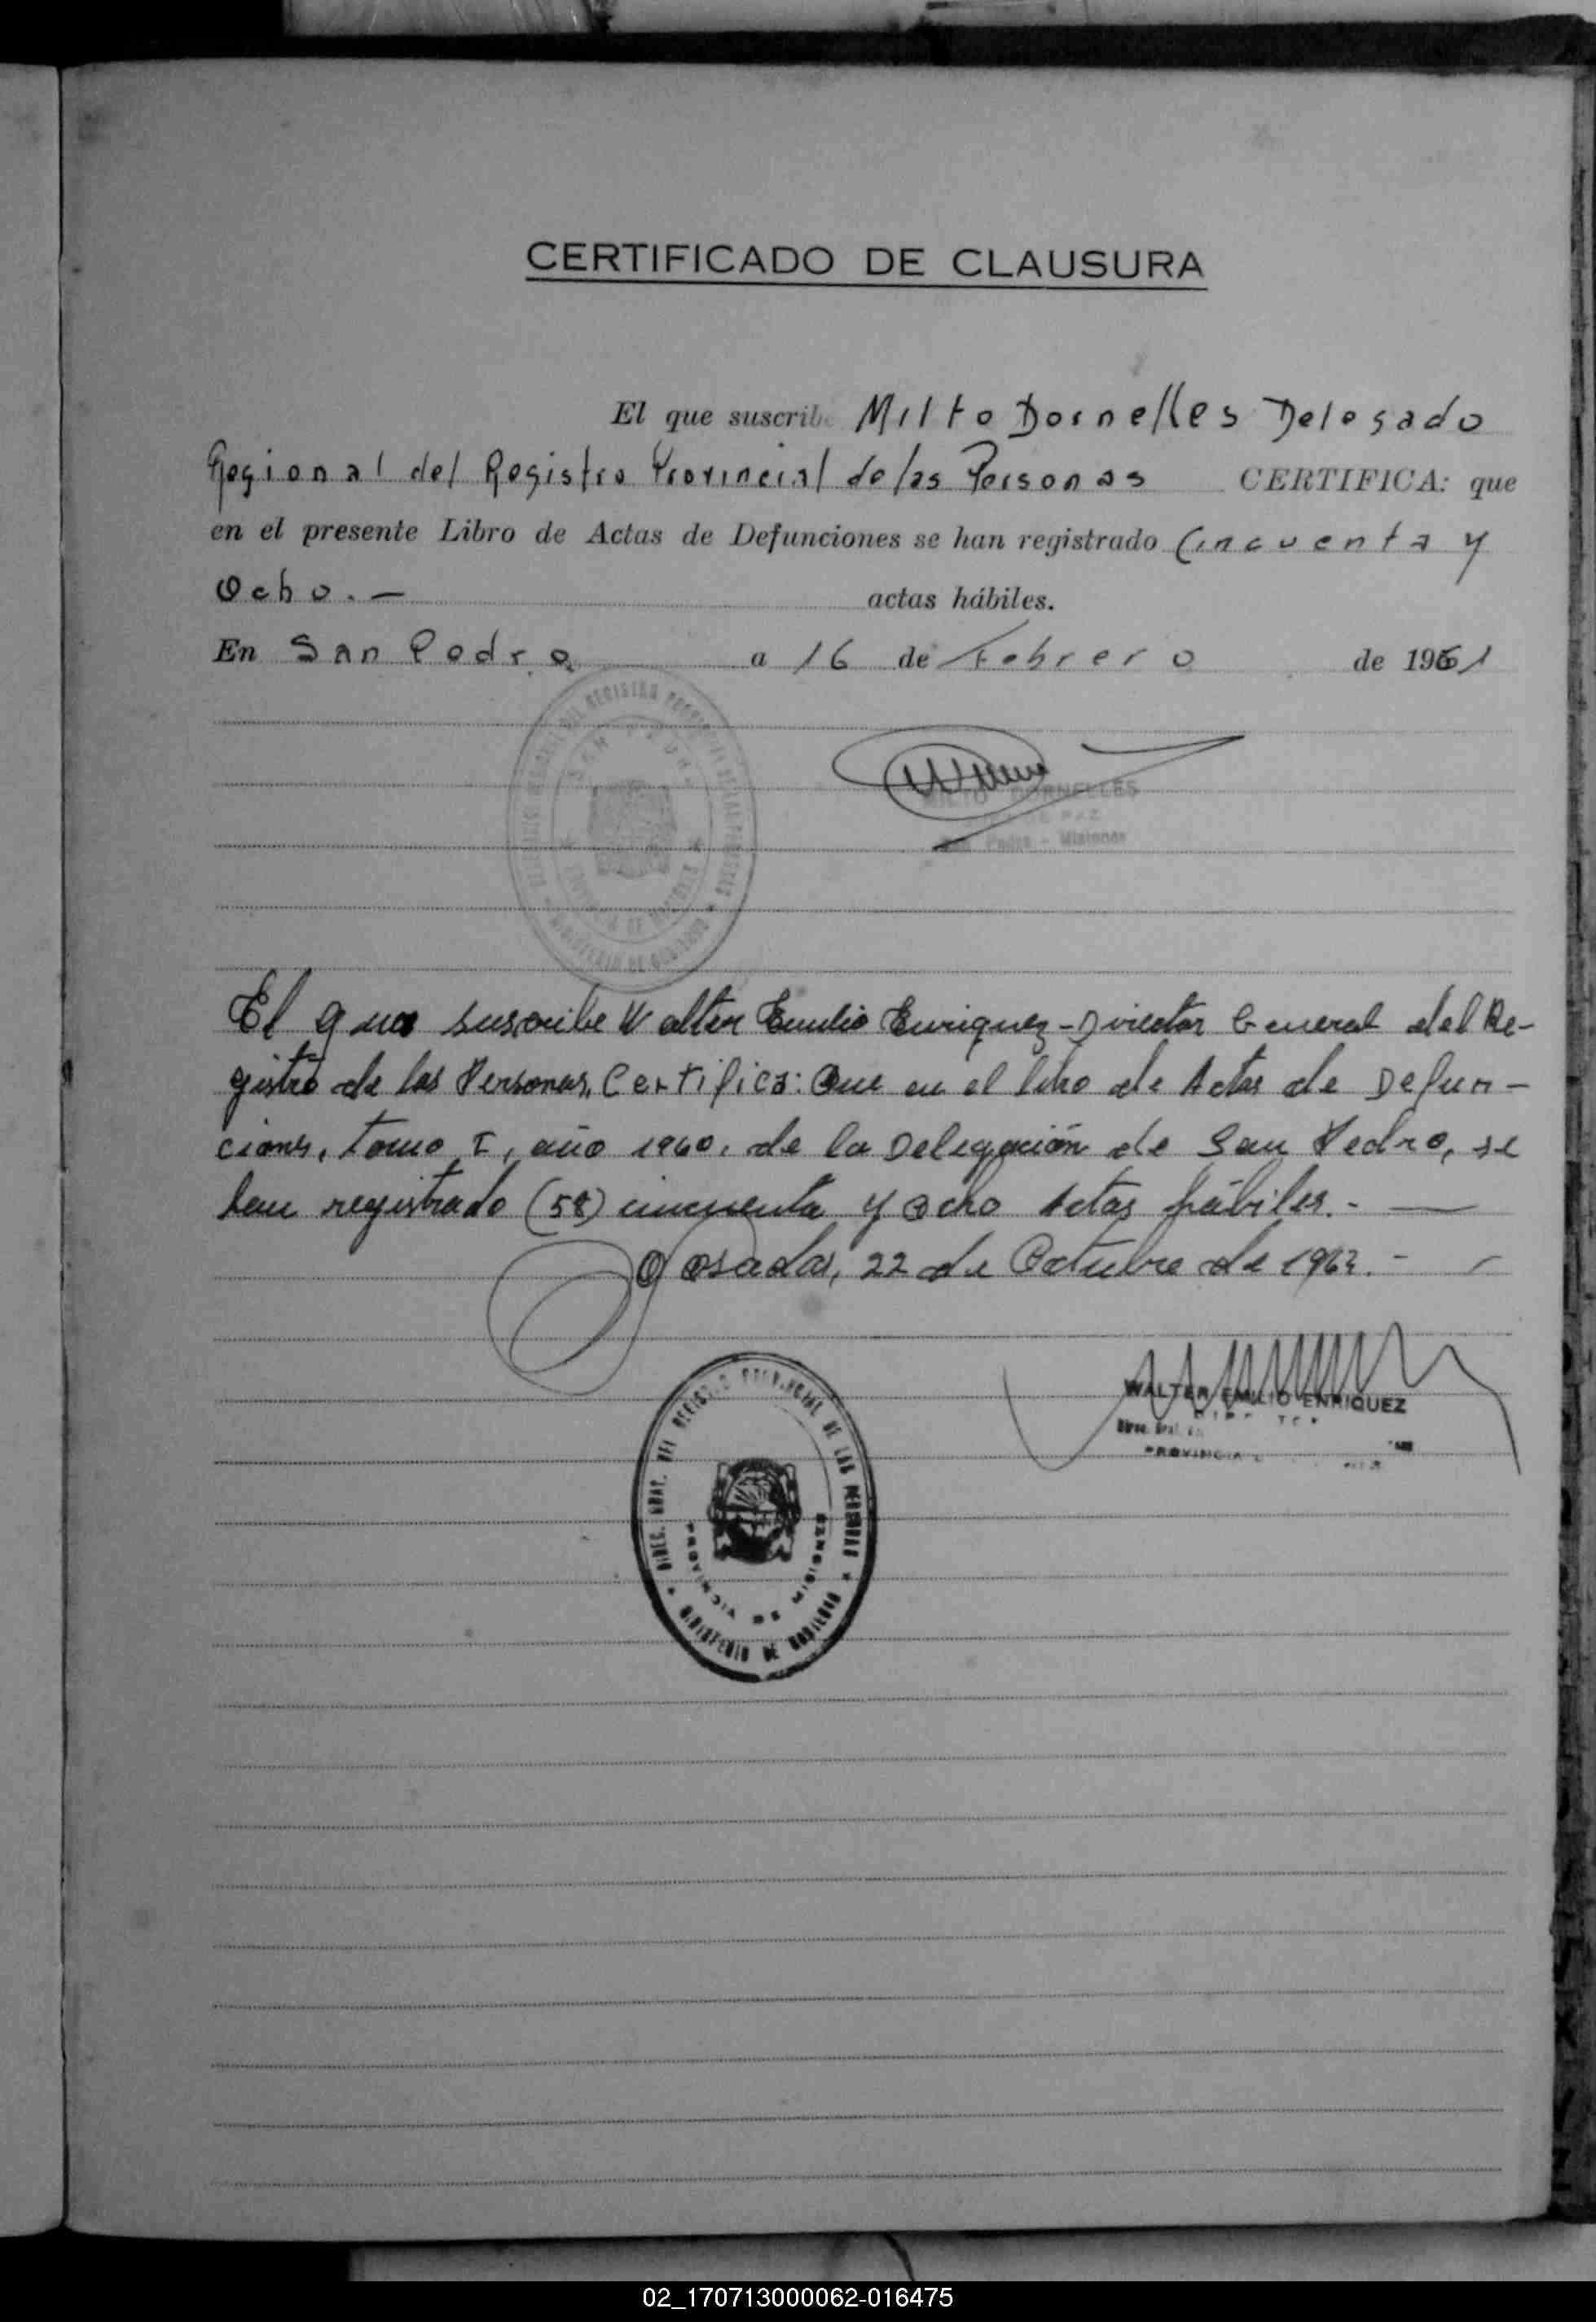 CERTIFICADO DE CLAUSURA
El que suscribe Milto Dornelles Delegado
Regional del Registro Provincial de las Personas CERTIFICA: que
en el presente Libro de Actas de Defunciones se han registrado Cincuenta y
Ocho.— actas hábiles.
En San Pedro a 16 de Febrero de 1961
DORNELLES
PAZ
Pedro - Misiones
El que suscribe Walter Emilio Enriquez - Director General del Re-
gistro de las Personas, Certifica: Que en el libro de Actas de Defun-
ciones, tomo I, año 1960, de la Delegación de San Pedro, se
han registrado (58) cincuenta y ocho Actas hábiles. - —
Posadas, 22 de Octubre de 1962. -
WALTER EMILIO ENRIQUEZ
Direc. Gral.
PROVINCIA
DIREC. GRAL. DEL REGISTRO PROVINCIAL DE LAS PERSONAS
PROVINCIA DE MISIONES
MINISTERIO DE GOBIERNO
02_170713000062-016475